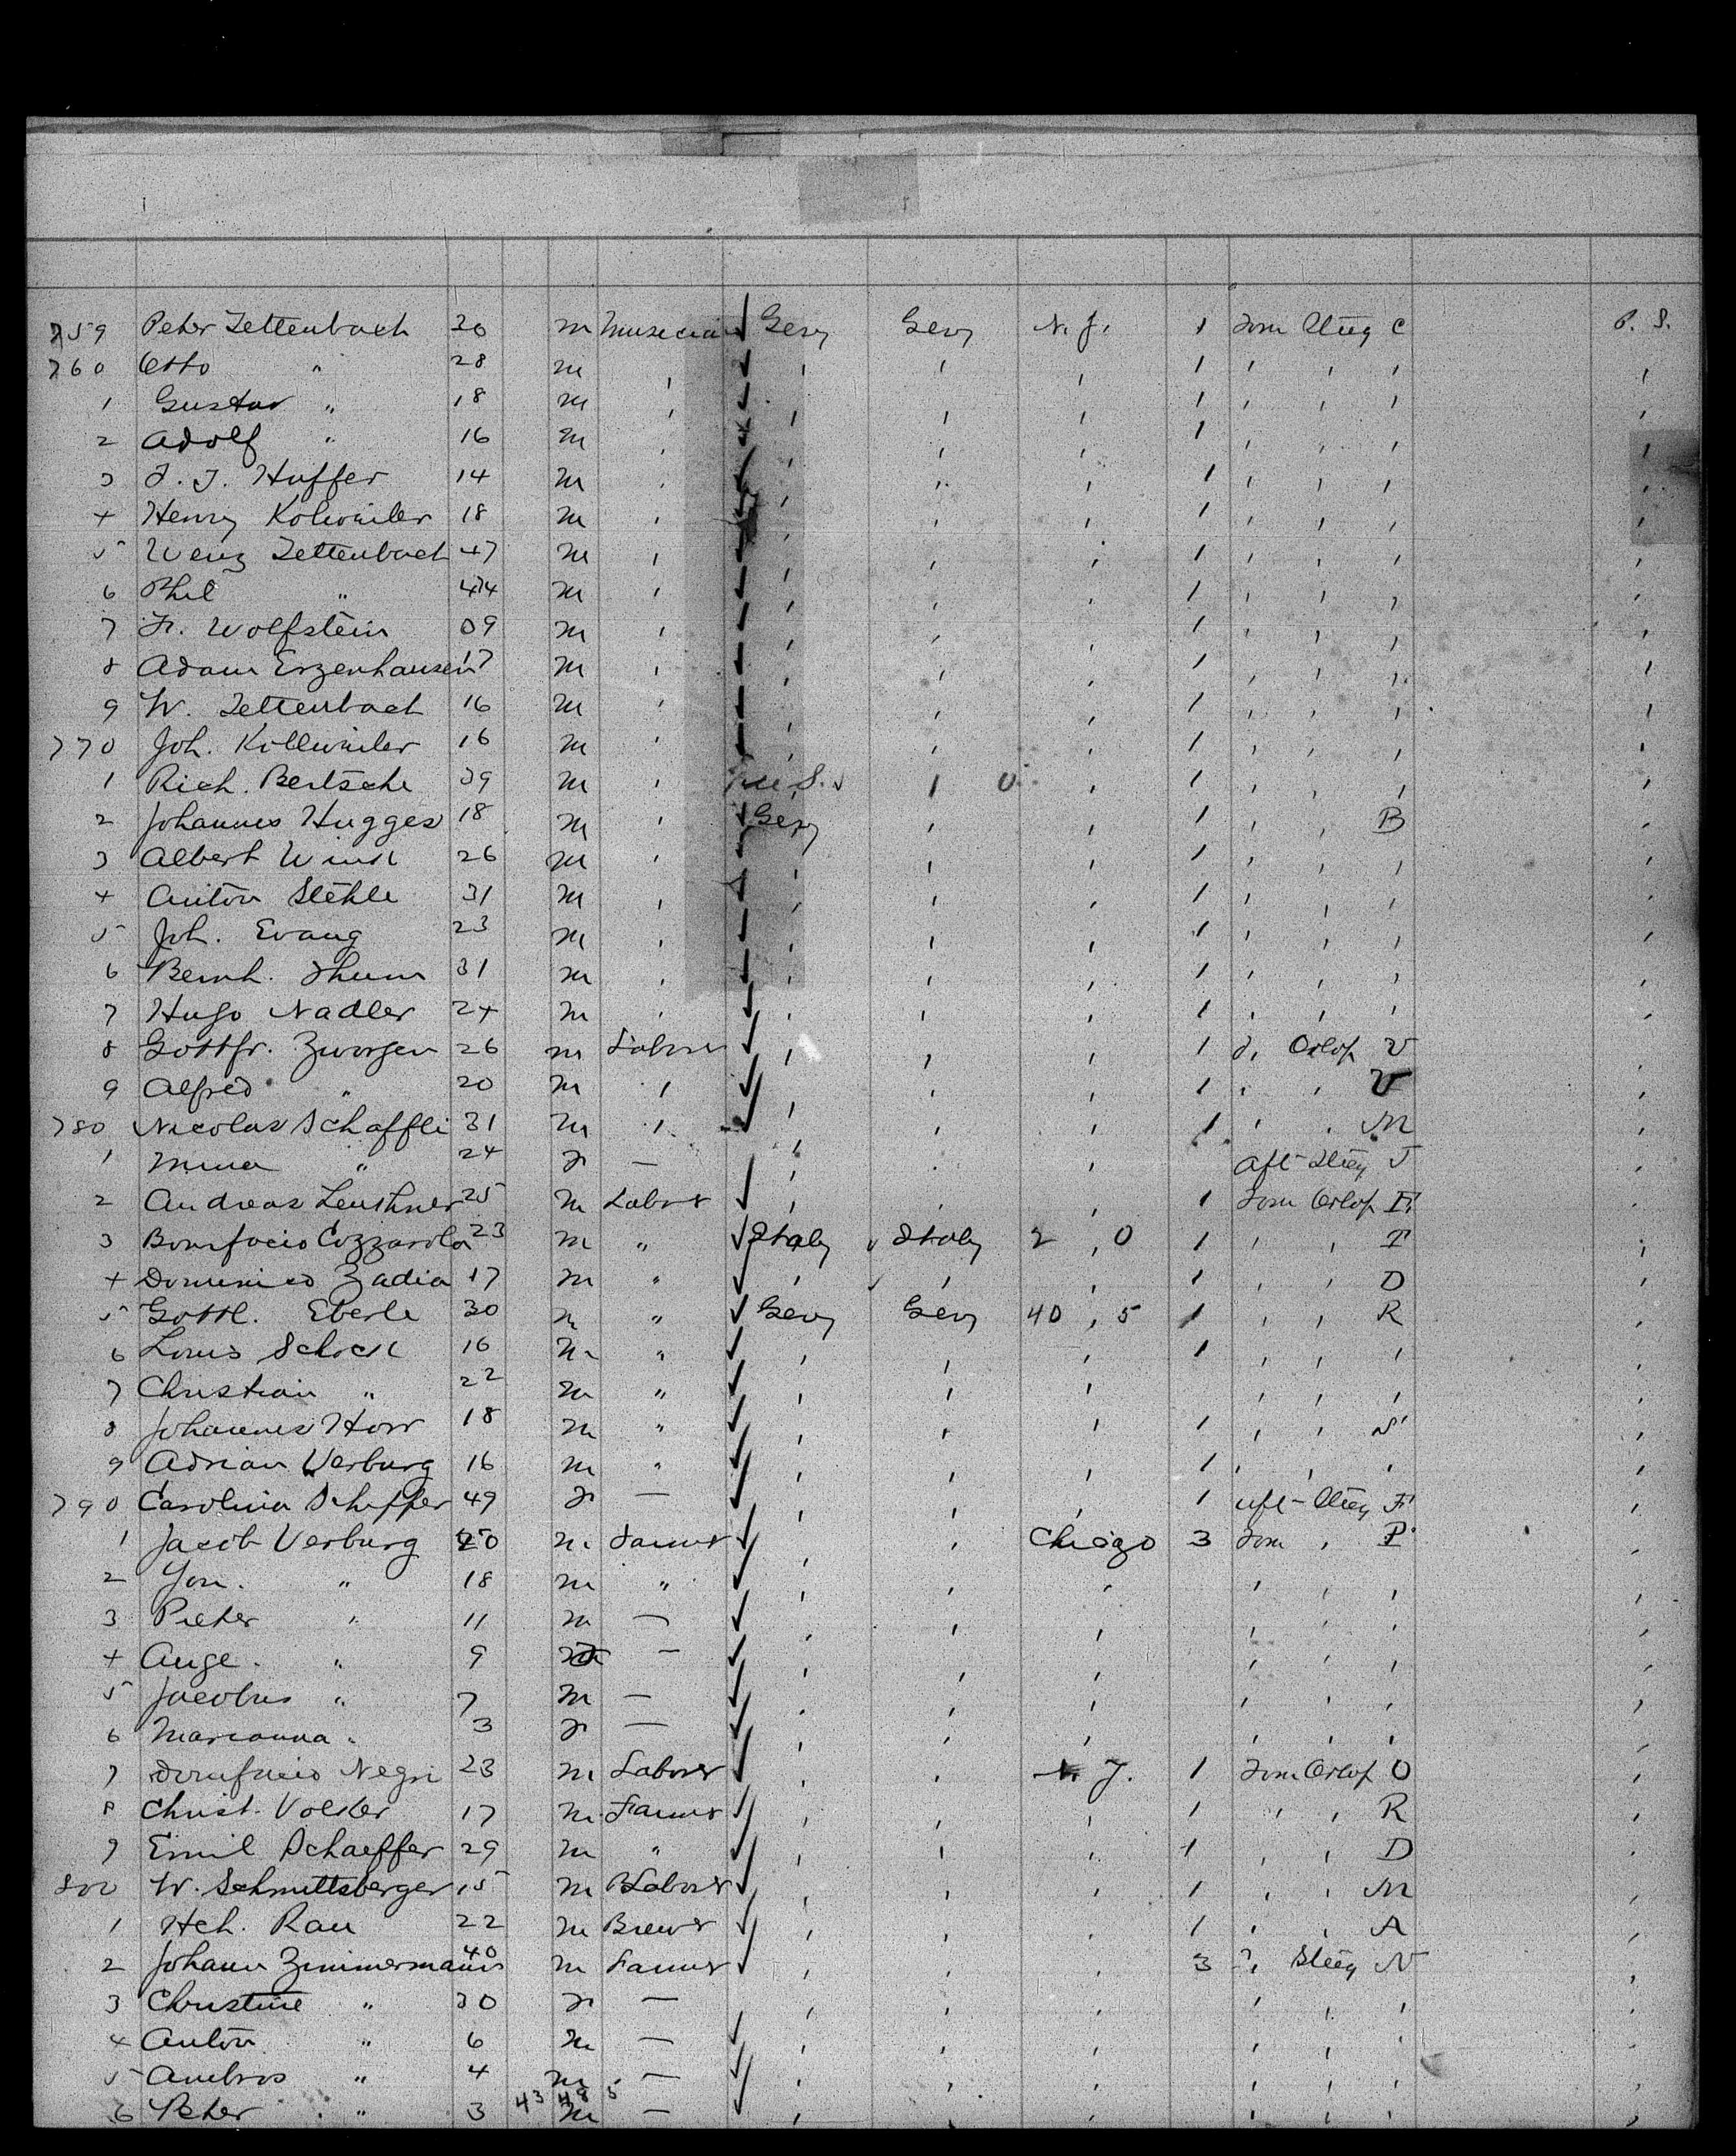 759 Peter Zettenbach 20 m Musician Gery Gery N. J. 1 Form Steg C P. S.
760 Otto " 28 m , , , , 1 , , , ,
1 Gustav " 18 m , , , , 1 , , , ,
2 Adolf " 16 m , , , , 1 , , , ,
3 F. J. Huffer 14 m , , , , 1 , , , ,
4 Henry Kolwiler 18 m , , , , 1 , , , ,
5 Wenz Zettenbach 47 m , , , , 1 , , , ,
6 Phil " 44 m , , , , 1 , , , ,
7 Fr. Wolfstein 39 m , , , , 1 , , , ,
8 Adam Erzenhausen 17 m , , , , 1 , , , ,
9 W. Zettenbach 16 m , , , , 1 , , , ,
770 Joh. Killwiler 16 m , , , , 1 , , , ,
1 Rich. Bertsche 39 m , U. S. 1 0 , 1 , , , ,
2 Johannes Hugges 18 m , Gery , , 1 , , B ,
3 Albert Wink 26 m , , , , 1 , , , ,
4 Anton Stehle 31 m , , , , 1 , , , ,
5 Joh. Evang 23 m , , , , 1 , , , ,
6 Bernh. Thum 31 m , , , , 1 , , , ,
7 Hugo Nadler 24 m , , , , 1 , , , ,
8 Gottfr. Zworgen 26 m Labore , , , 1 F, Orlop V ,
9 Alfred " 20 m , , , , 1 , , V ,
780 Nicolas Schaffli 31 m , , , , 1 , , M ,
1 Mina " 24 F — , , , Aft Steg J ,
2 Andreas Leuthner 25 m Labor , , , 1 Form Orlop E ,
3 Bonifacio Cozzarola 23 m " Italy Italy 2 , 0 1 , , T ,
4 Domenico Zadia 17 m " , , , 1 , , D ,
5 Gottl. Eberle 30 m " Gery Gery 40 , 5 1 , , R ,
6 Louis Schock 16 m " , , , 1 , , , ,
7 Christian " 22 m " , , , , , , ,
8 Johannes Horr 18 m " , , , 1 , , S ,
9 Adrian Verburg 16 m " , , , 1 , , , ,
790 Carolina Schiffer 49 F — , , , 1 Aft Steg F ,
1 Jacob Verburg 40 m Farmer , , Chicgo 3 Form , P ,
2 Jon. " 18 m " , , , , , , ,
3 Pieter " 11 m — , , , , , , ,
4 Ange. " 9 F — , , , , , , ,
5 Jacobus " 7 m — , , , , , , ,
6 Marianna " 3 F — , , , , , , ,
7 Bonifacio Negri 23 m Laborer , , N. J. 1 Form Orlop O ,
8 Christ. Volker 17 m Farmer , , , 1 , , R ,
9 Emil Schaeffer 29 m " , , , 1 , , D ,
800 W. Schmittsberger 15 m Laborer , , , 1 , , M ,
1 Hch. Rau 22 m Brewer , , , 1 , , A ,
2 Johann Zimmermann 40 m Farmer , , , 3 F, Steg N ,
3 Christine " 30 F — , , , , , , ,
4 Anton " 6 m — , , , , , , ,
5 Ambros " 4 m — , , , , , , ,
43 48 5
6 Peter " 3 m — , , , , , , ,